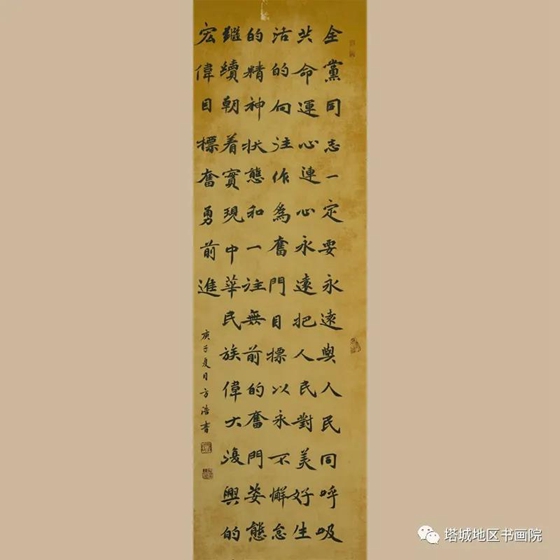 全黨同志一定要永遠與人民同呼吸
共命運心連心永遠把人民對美好生
活的向往作為奮鬥目標以永不懈怠
的精神狀態和一往無前的奮鬥姿態
繼續朝着實現中華民族偉大復興的
宏偉目標奮勇前進
庚子夏月方浩書
塔城地区书画院